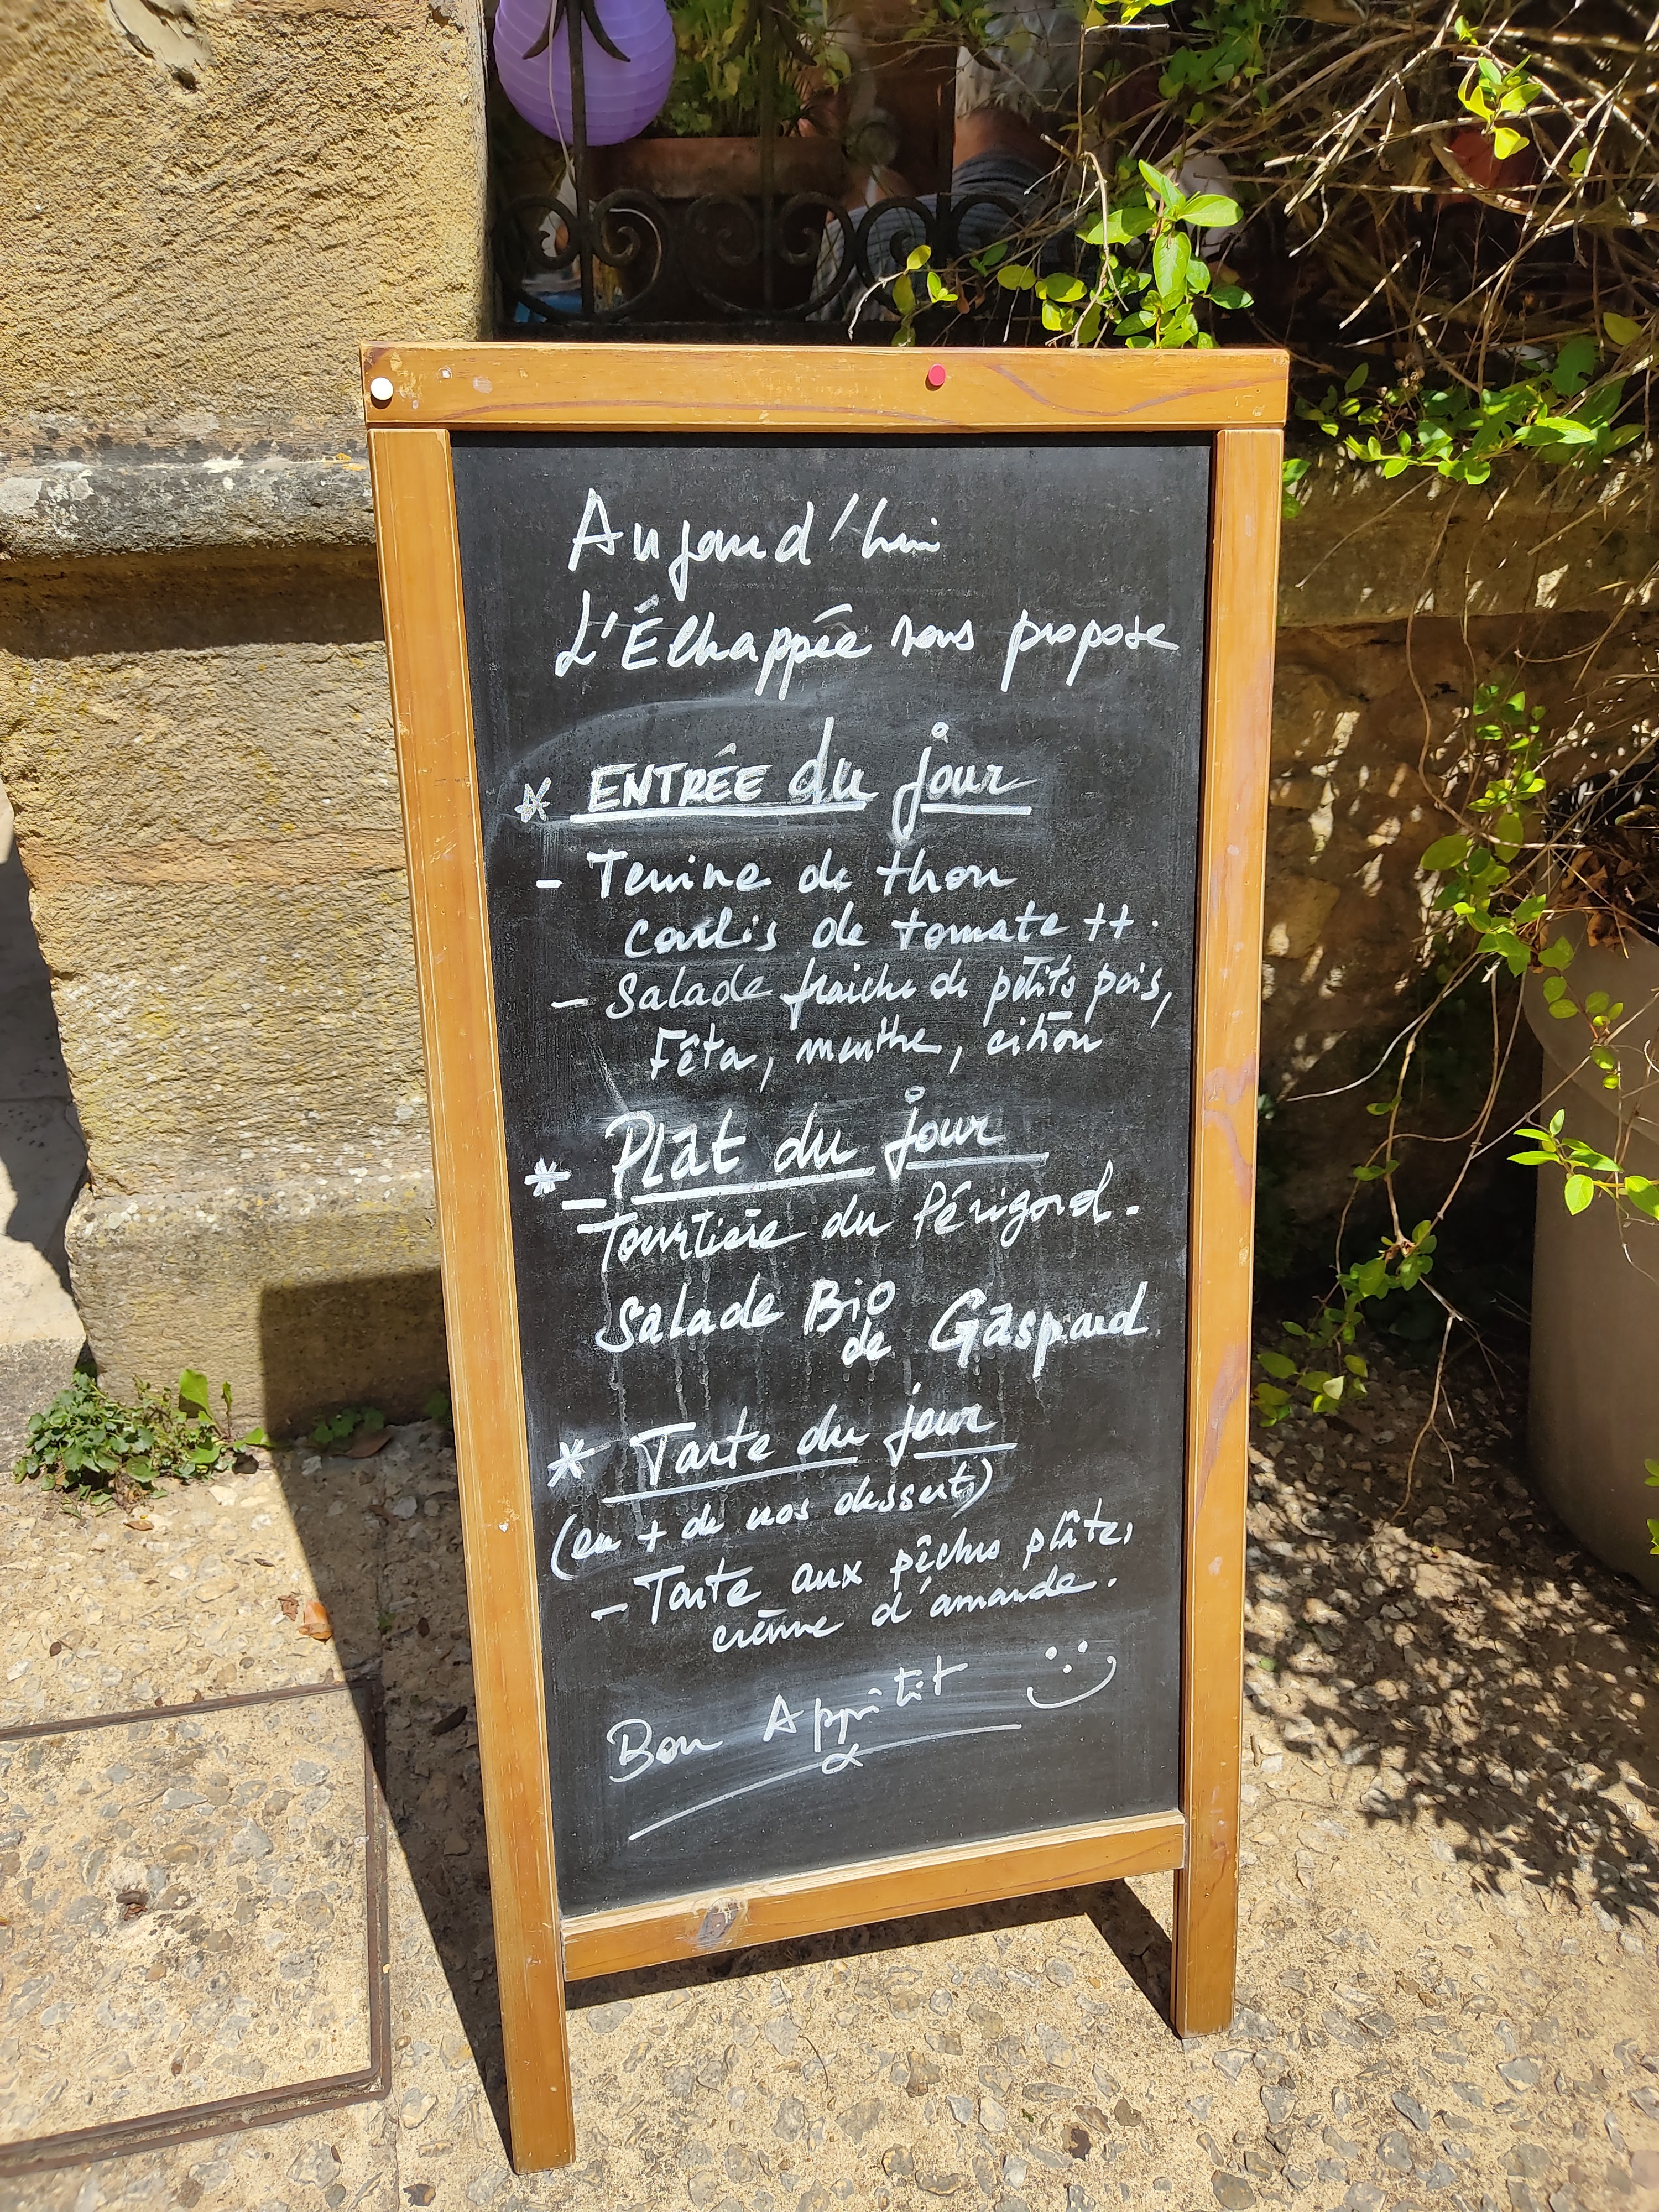 Aujourd'hui
L'Échappée vous propose
* ENTRÉE du jour
- Terrine de thon
coulis de tomate ++.
- Salade fraiche de petits pois,
Fêta, menthe, citron
* PLât du jour
- Tourtière du Périgord.
Salade Bio
de Gaspard
* Tarte du jour
(en + de nos desserts)
- Tarte aux pêches plâtes,
crème d'amande.
Bon Appêtit